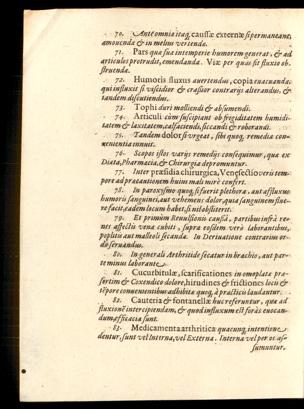 70. Ante omnia itaq́; caussæ externæ si permaneant,
amouenda & in melius vertenda.
71. Pars quæ sua intemperie humorem generat, & ad
articulos protrudit, emendanda. Viæ per quas fit fluxio ob-
struenda.
72. Humoris fluxus auertendus, copia euacuanda:
qui influxit si viscidior & crassior contrarijs alterandus, &
tandem discutiendus.
73. Tophi duri molliendi & absumendi.
74. Articuli cùm suscipiant ob frigiditatem humidi-
tatem & laxitatem, calfaciendi, siccandi & roborandi.
75. Tandem dolor si vrgeat, sibi quoq́; remedia con-
uenientia innuit.
76. Scopos istos varijs remedijs consequimur, quæ ex
Diæta, Pharmacia, & Chirurgia depromuntur.
77. Inter præsidia chirurgica, Venæsectio veris tem-
pore ad præcautionem huius mali mirè confert.
78. In paroxysmo quoq́; si fuerit plethora, aut affluxus
humoris sanguinei, aut vehemens dolor, quia sanguinem sine-
re facit, eadem locum habet, si nil obstiterit.
79. Et primùm Reuulsionis caussâ, partibus infrà re-
nes affectis vena cubiti, supra eosdem verò laborantibus,
poplitis aut malleoli secanda. In Deriuatione contrarius or-
do seruandus.
80. In generali Arthritide secatur in brachio, aut par-
te minus laborante.
81. Cucurbitulæ, scarificationes in omoplatæ præ-
sertim & Coxendico dolore, hirudines & frictiones locis &
tẽpore conuenientibus adhibitæ quoq́; à practicis laudantur.
82. Cauteria & fontanellæ huc referuntur, quæ ad
fluxionẽ intercipiendam, & quod influxum est foràs euocan-
dum, efficacia sunt.
83. Medicamenta arthritica quacunq́; intentione
dentur, sunt vel Interna, vel Externa. Interna vel per os as-
sumuntur.